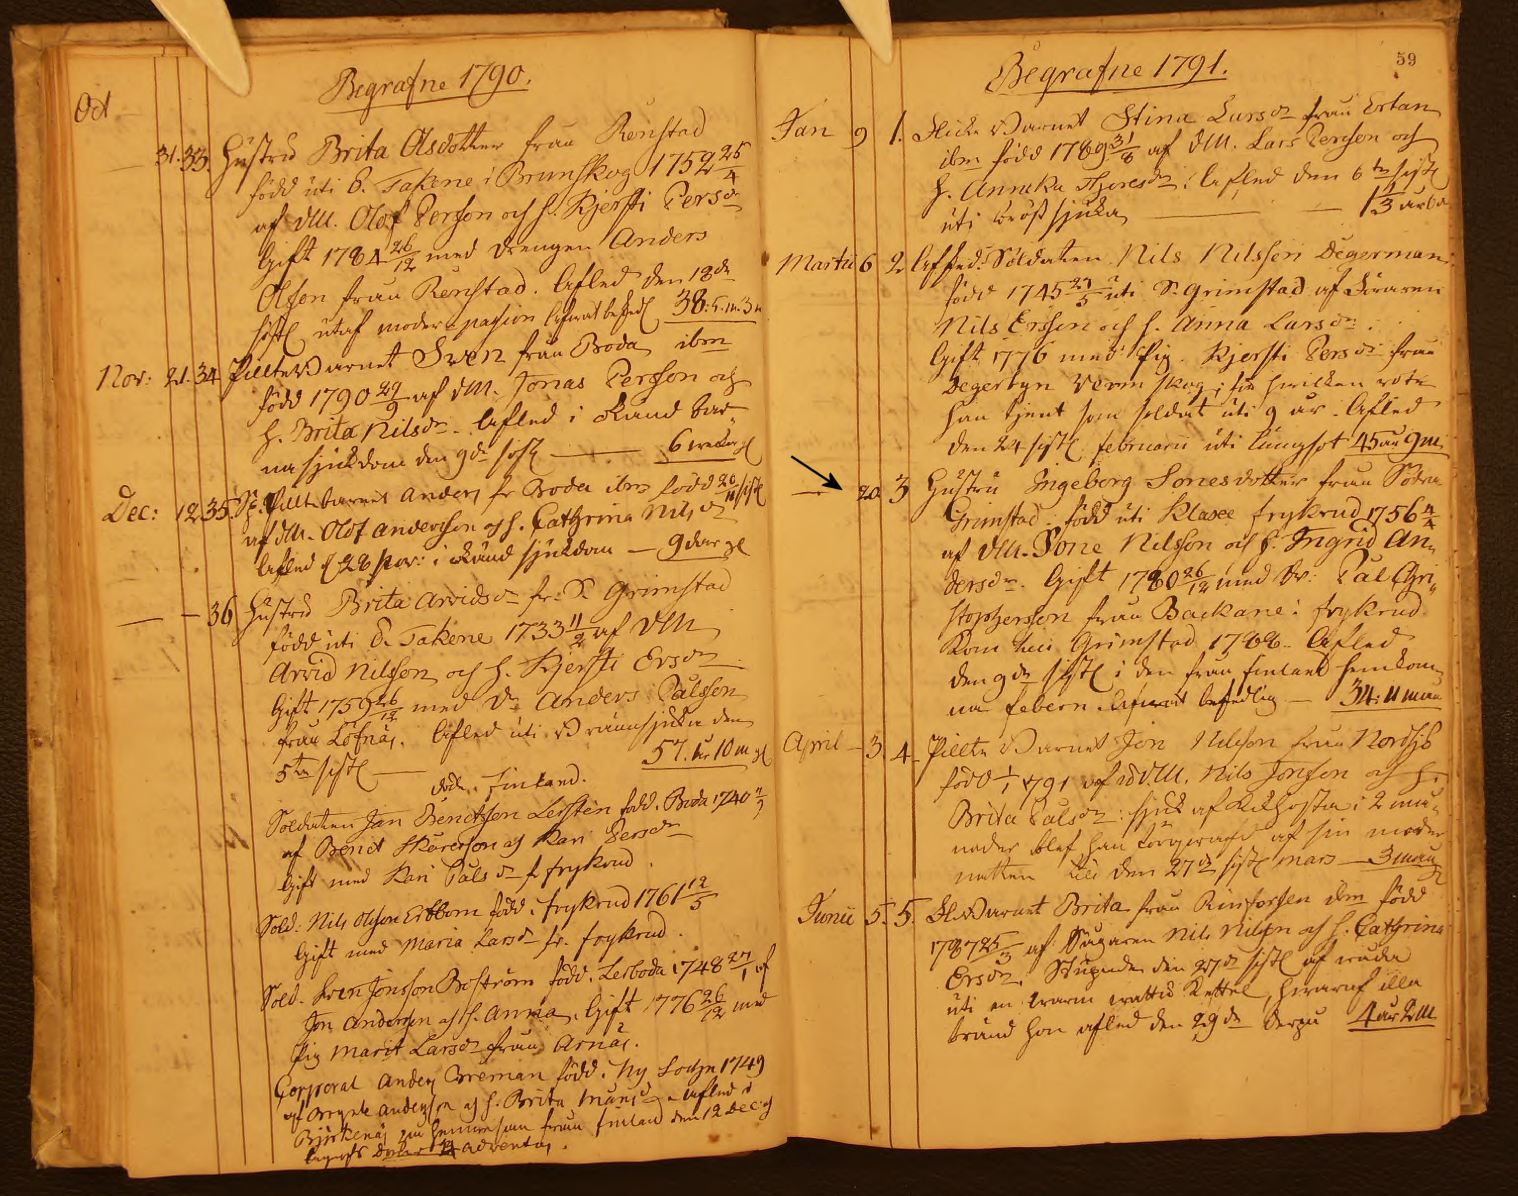 Begrafne 1790.
Oct
— 31. 33. Hustru Brita Olsdotter från Renstad
född uti Ö. Takene i Brunskog 1752 25/4
af dM. Olof Persson och h. Kjersti Persdr
Gift 1784 26/12 med drengen Anders
Olsson från Renstad. Afled den 18de
sistl utaf moder-passion 38.5.m.3
Nov: 21. 34 Piltebarnet Swen från Boda ibm
född 1790 29/9 af dM. Jonas Persson och
h. Brita Nilsdr. Afled i okänd bar-
nasjukdom den 9de sistl — 6 weckor
Dec: 12 35. Piltebarnet Anders fr Boda ibm född 20/11 sistl
af dM. Olof Andersson och h. Cathrina Nilsdr
Afled d 28 Nov: i okänd sjukdom — 9 dar
— — 36 Hustru Brita Arvidsdr fr. S. Grimstad
född uti Ö. Takene 1733 11/2 af dM
Arvid Nilsson och h. Kjersti Ersdr
Gift 1759 26/12 med Anders Pålsson
från Löfnäs. Afled uti Brännsjuka den
5te sistl — 57. år 10 m
döde i Finland.
Soldaten Jan Bendtsson född. Boda 1740
af Bendt och Kari Persdr
Gift med Kari Pålsdr f. frykerud.
Sold: Nils Olsson född. frykerud 1761 12/5
Gift med Maria Larsdr fr. frykerud.
Sold. Sven Jonsson Boström född. Lerboda 1748 27/1 af
Jon Andersson och h. Anna. Gift 1776 26/12 med
Pig Marit Larsdr från Arnäs.
Corporal Anders Breman född. Ny Sochn 1749
af Andersson och h. Brita Afled i
Björkenäs från Finland den 12 Dec. och
advents.
Begrafne 1791. 59
Jan 9 1. Flickebarnet Stina Larsdr från Ertan
ibm född 1789 31/8 af dM. Lars Persson och
h. Annika. Afled den 6te sistl
uti bröstsjuka — —
Martii 6 2. Afsked: Soldaten Nils Nilsson Degerman:
född 1745 27/5 uti S. Grimstad af
Nils Ersson och h. Anna Larsdr.
Gift 1776 med Pig. Kjersti Persdr från
Degerbyn Wermskog; för hwilken rote
han tjent som soldat uti 9 år. Afled
den 24 sistl. februarii uti lungsot 45 år 9 m:
— 20 3 Hustru Ingeborg Sonesdotter från Södra
Grimstad. född uti Klaxee frykerud 1756 4/4
af dM. Sone Nilsson och h. Ingrid An-
dersdr. Gift 1780 26/12 med Br: Pal Chri-
stophersson från Backane i frykerud
Kom till Grimstad 1788. Afled
den 9de sistl i den från finland hemkom-
na febern. — 34: 11 mån
April — 3. 4. Pilte Barnet Jon Nilsson från Nordsjö
född 1/1 1791 af dM. Nils Jonsson och h.
Brita Palsdr: sjuk af Kikhosta i 2 må-
nader blef han af sin moder
natten till den 27de sistl mars — 3 mån
Junii 5. 5. Fl. Barnet Brita från Rinforsen ibm född
1787 25/3 af Sågaren Nils Nilsson och h. Cathrina
Ersdr. den 27de sistl af
uti en warm Kettel, hwaraf illa
bränd hon afled den 29de derpå 4 år 2 M.